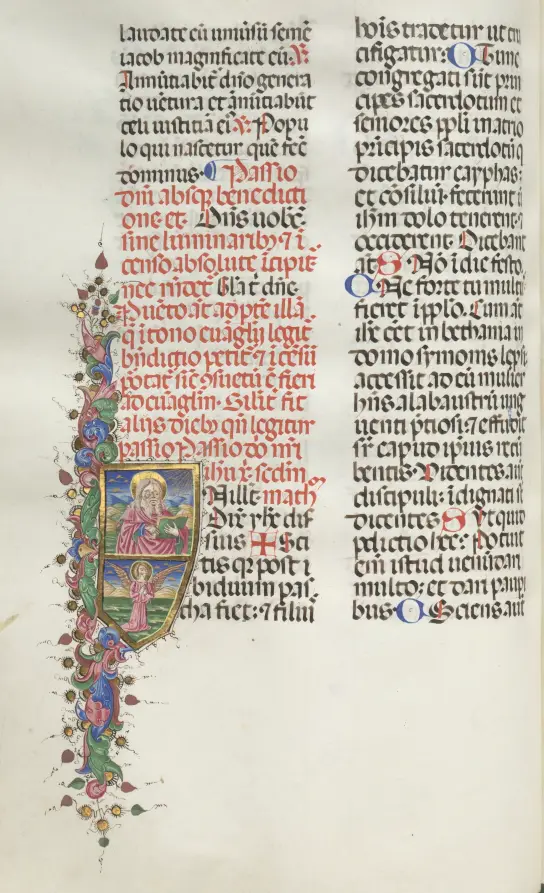 laudate eū uniūsū semē
iacob magnificate eū. R
Annūtiabit̄ dn̄o genera
tio uētura et ānūtiabūt
celi iustitiā ei. V. Popu
lo qui nascetur quē fec̄
dominus. Passio
dn̄i absq̄ benedicti
one et. Dn̄s uobc̄.
sine luminarib; ⁊ ī
censo absolute īcipit̄
nec rn̄det Gl̄a t̄ dn̄e.
q̄ ī tono euāglij legit
bn̄dictio petit̄ ⁊ īcēsū
portat̄ sic̄ ɔsuetū ē fieri
ad euāgliū. Silit̄ fit
alijs dieb; qn̄ legitur
passio Passio do mī
ihū xp̄. sedm̄
Nill't. math
Dix̄ yh̄c dis
suis ✠ Sci
tis q̄ post ī
biduum pas
cha fiet: ⁊ filiū
hoīs tradetur ut cru
cifigatur: C Tunc
congregati sūt prin
cipes sacerdotum et
seniores pp̄li in atrio
prīcipis sacerdotū q̄
dicebatur cayphas:
et cōsiliū fecerunt ī
ih̄m dolo tenerent ⁊
occiderent. Dicebant
at̄ S Nō ī die festo.
C Ne forte tumult
fieret ī pp̄lo. Cum at̄
ih̄c eēt in bethania in
domo symonis lepsi
accessit ad eū mulier
hn̄s alabastrū ung
uenti p̄tiosi: ⁊ effudit
sr̄ caput ip̄ius recū
bentis. Videntes aūt
discipuli: īdignati st̄
dicentes S Ut quid
pditio hec: Potuit
em istud uenūdari
multo: et dari paup̄i
bus. C Sciens aūt